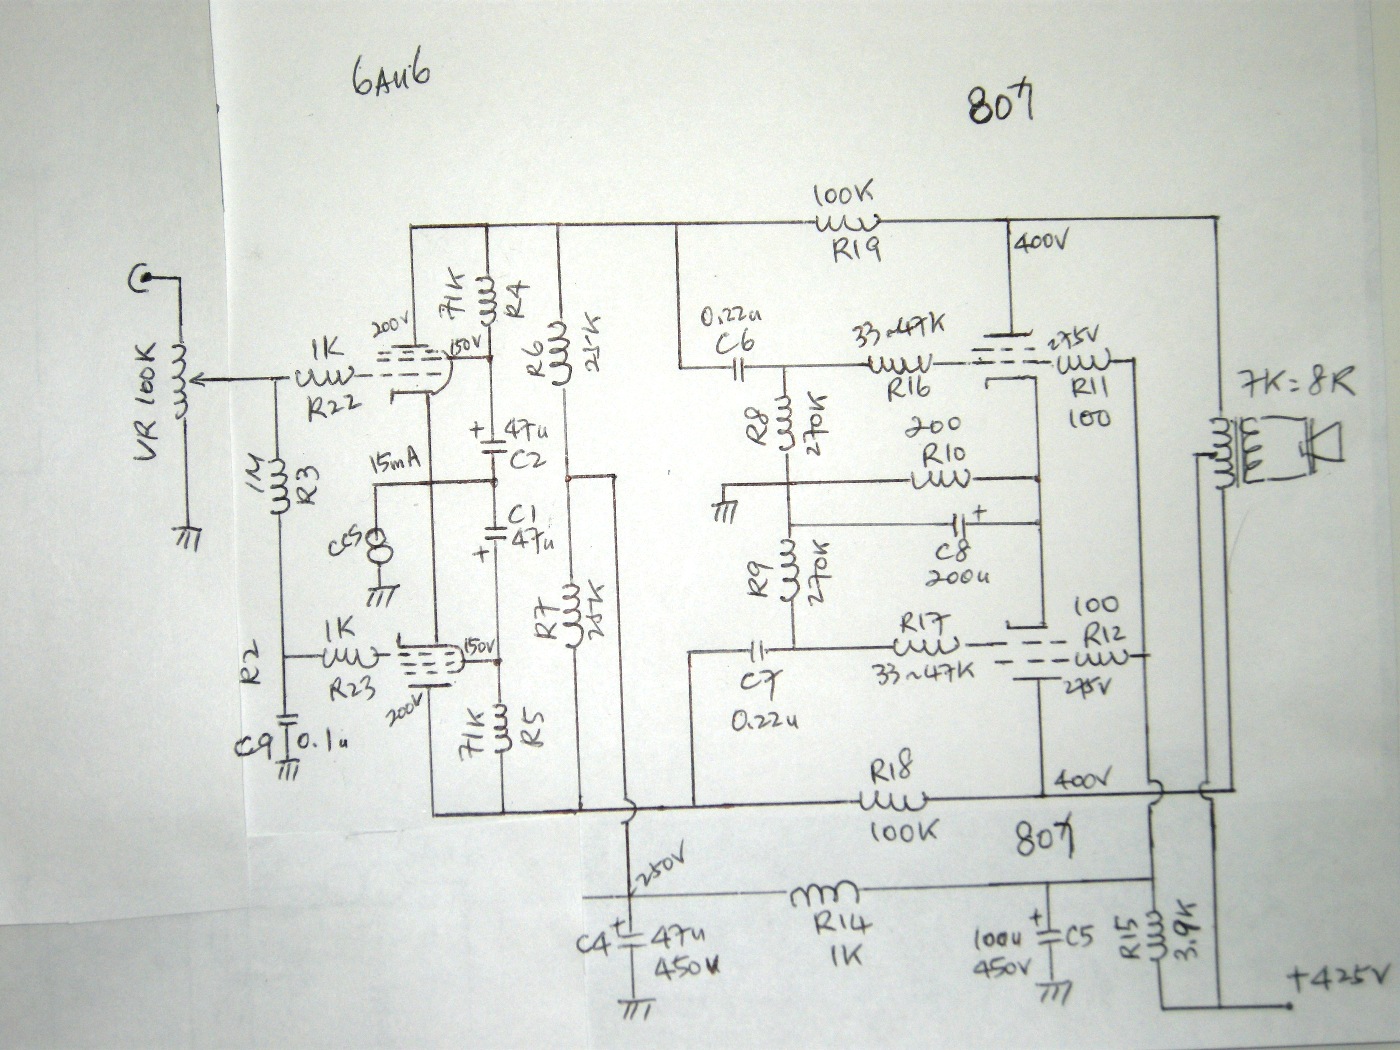 6AU6
807
100K
R19
400V
200V
71K
R4
150V
R6
25K
0.22u
C6
33~47K
R16
275V
R11
100
1K
R22
VR 100K
7K=8R
R8
270K
200
R10
47u
C2
+
15mA
1M
R3
C1
47u
+
CCS
+
C8
200u
R9
270K
R7
25K
1K
R23
R2
150V
200V
R17
33~47K
100
R12
275V
C7
0.22u
71K
R5
C9 0.1u
R18
100K
400V
807
250V
R14
1K
C4
+
47u
450V
100u
450V
+
C5
R15
3.9K
+425V